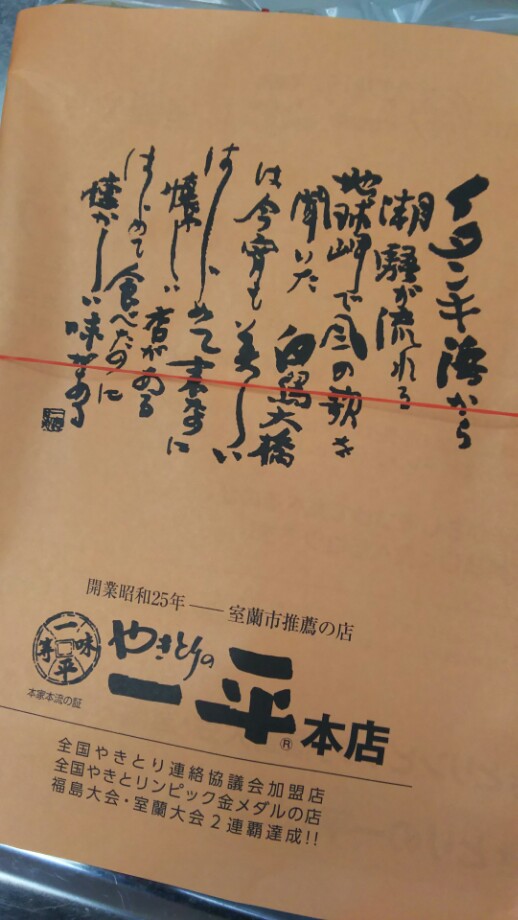 イタンキ浜から
潮騒が流れる
地球岬で風の歌を
聞いた 白鳥大橋
は今宵も美しい
はじめて来たのに
懐かしい店がある
はじめて食べたのに
懐かしい味がある
開業昭和25年——室蘭市推薦の店
一味平亭
本家本流の証
やきとりの
一平®本店
全国やきとり連絡協議会加盟店
全国やきとリンピック金メダルの店
福島大会・室蘭大会2連覇達成!!